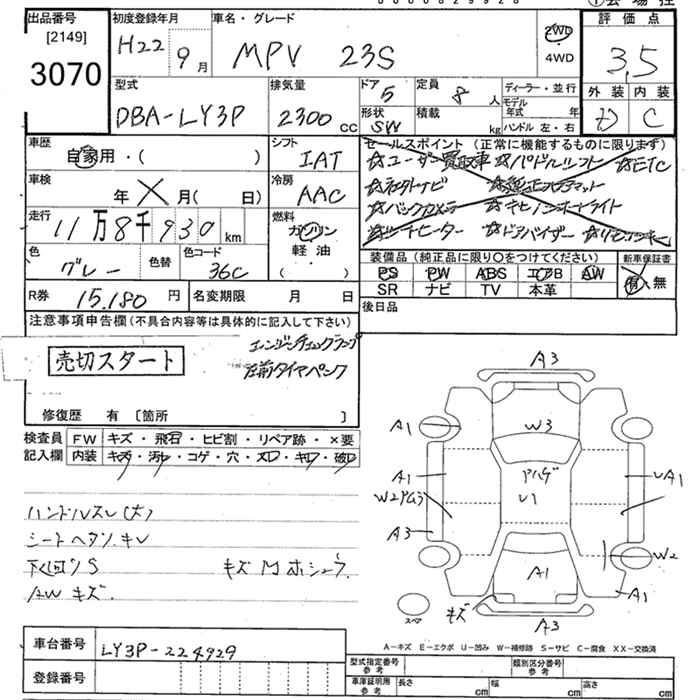 出品番号 初度登録年月 車名・グレード 評価点
[2149]
3070
H22 9月 MPV 23S 2WD 4WD 3.5
型式 排気量 ドア 定員 ディーラー・並行 外装 内装
DBA-LY3P 2300cc 5 8人 モデル年式 年 D C
形状 積載 ハンドル 左・右
SW kg
車歴 シフト セールスポイント(正常に機能するものに限ります)
自家用・( ) IAT ☆ユーザー買取車 ☆パドルシフト ☆ETC
車検 冷房
年 月( 日) AAC
☆バックカメラ
走行 燃料
11万8千930km ガソリン
軽油( )
☆シートヒーター ☆ドアバイザー
色 色替 色コード 装備品(純正品に限り○をつけてください) 新車保証書
グレー 36C PS PW ABS エアB AW 有・無
SR ナビ TV 本革
R券 15,180円 名変期限 月 日 後日品
注意事項申告欄(不具合内容等は具体的に記入して下さい)
エンジンチェックランプ
売切スタート
左前タイヤパンク
修復歴 有 [箇所 ]
検査員 FW キズ・飛石・ヒビ割・リペア跡・×要
記入欄 内装 キズ・汚レ・コゲ・穴・ヌレ・キレ・破レ
ハンドルスレ(大)
シートヘタリ.キレ
下廻りS キズ
AWキズ
A3
A1 W3
A1 アハゲ A1
U1
A3 W2
A1 A1
スペア キズ A3
A-キズ E-エクボ U-凹み W-補修跡 S-サビ C-腐食 XX-交換済
車台番号 LY3P-224929
登録番号
型式指定番号 参考 類別区分番号 参考
車庫証明用 参考 長さ cm 幅 cm 高さ cm